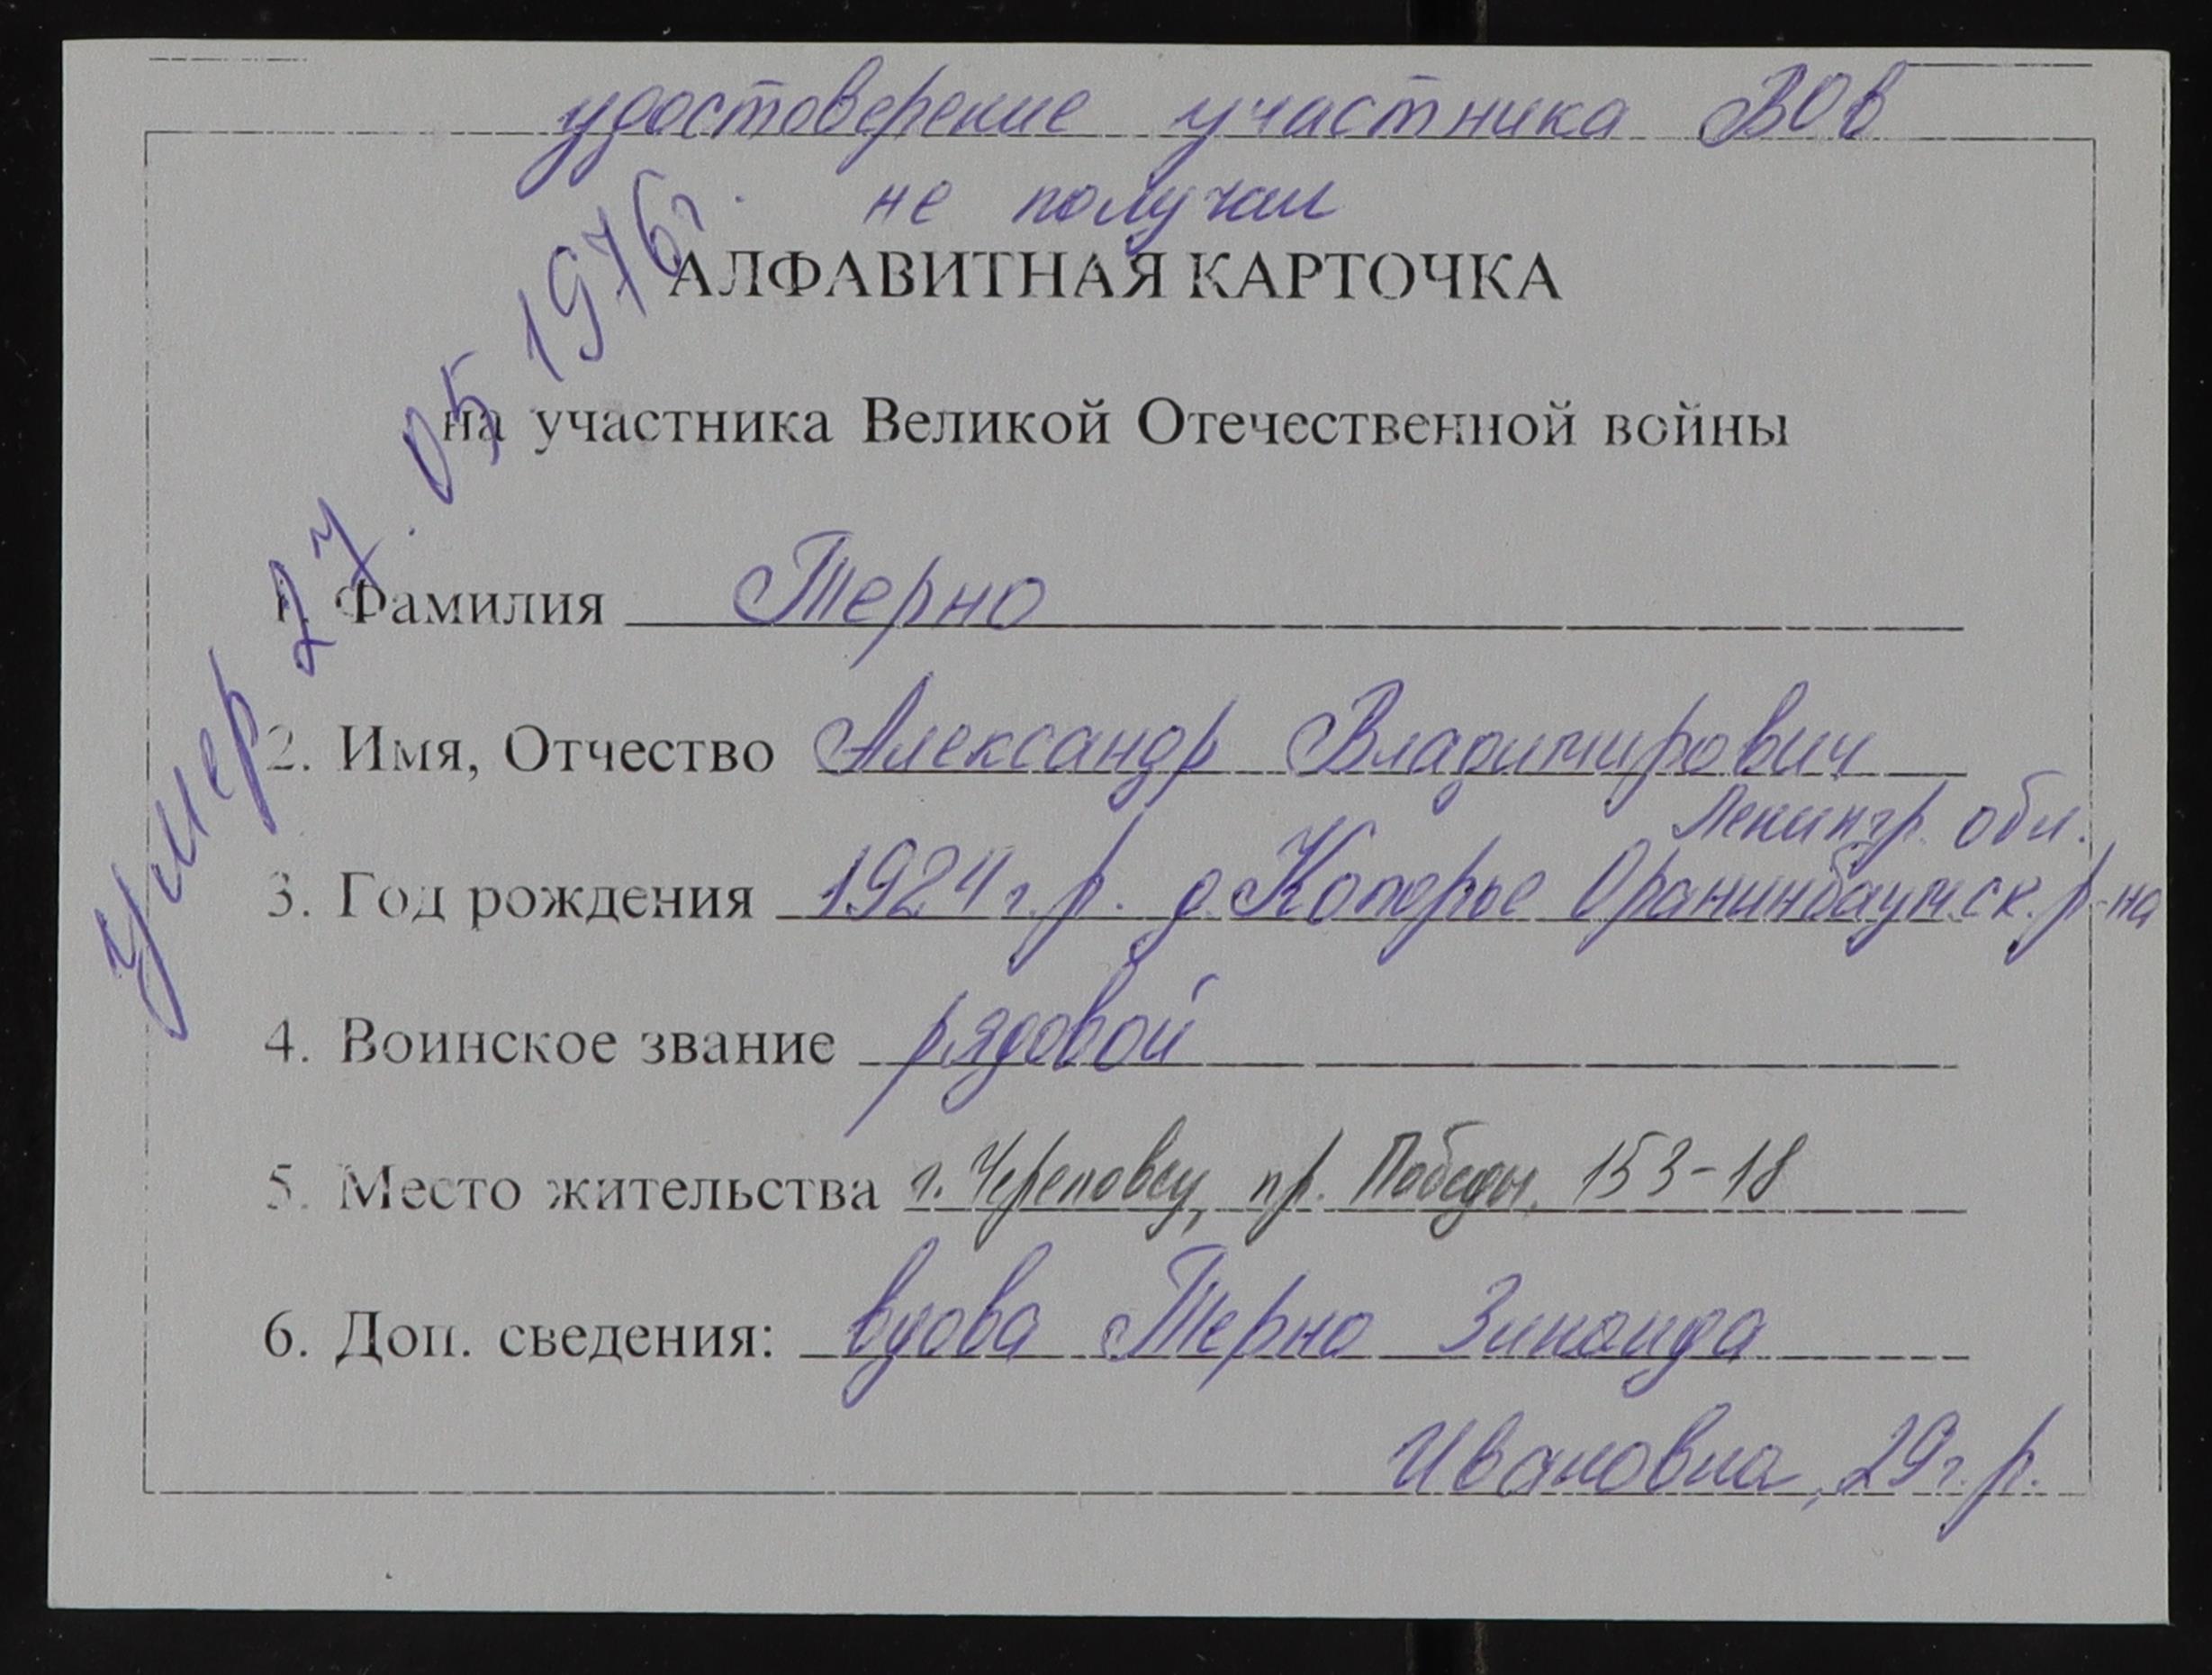 удостоверение участника ВОв
не получал
умер 27.05 1976г.
АЛФАВИТНАЯ КАРТОЧКА
на участника Великой Отечественной войны
1. Фамилия Терно
2. Имя, Отчество Александр Владимирович
Ленингр. обл.
3. Год рождения 1924 г.р. д. Копорье Оранинбаумск. р-на
4. Воинское звание рядовой
5. Место жительства г. Череповец, пр. Победы, 153-18
6. Доп. сведения: вдова Терно Зинаида
Ивановна, 29 г.р.